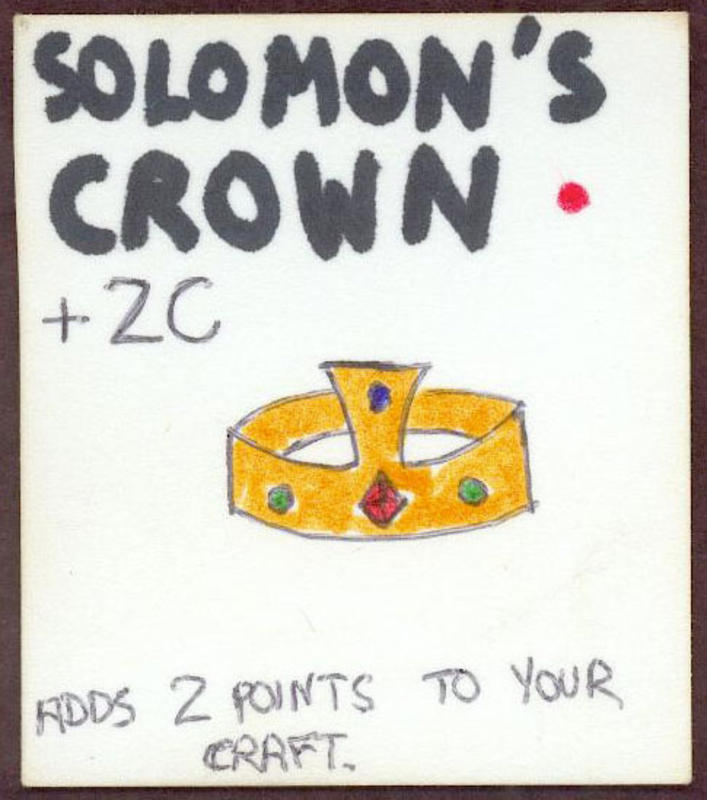 SOLOMON'S
CROWN
+2C
ADDS 2 POINTS TO YOUR
CRAFT.